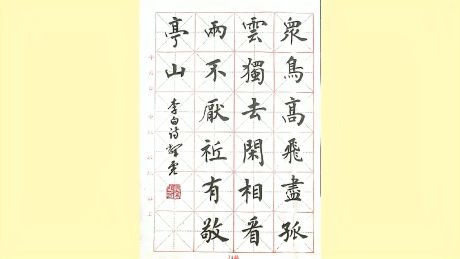 衆鳥高飛盡孤
雲獨去閑相看
兩不厭祗有敬
亭山
李白诗